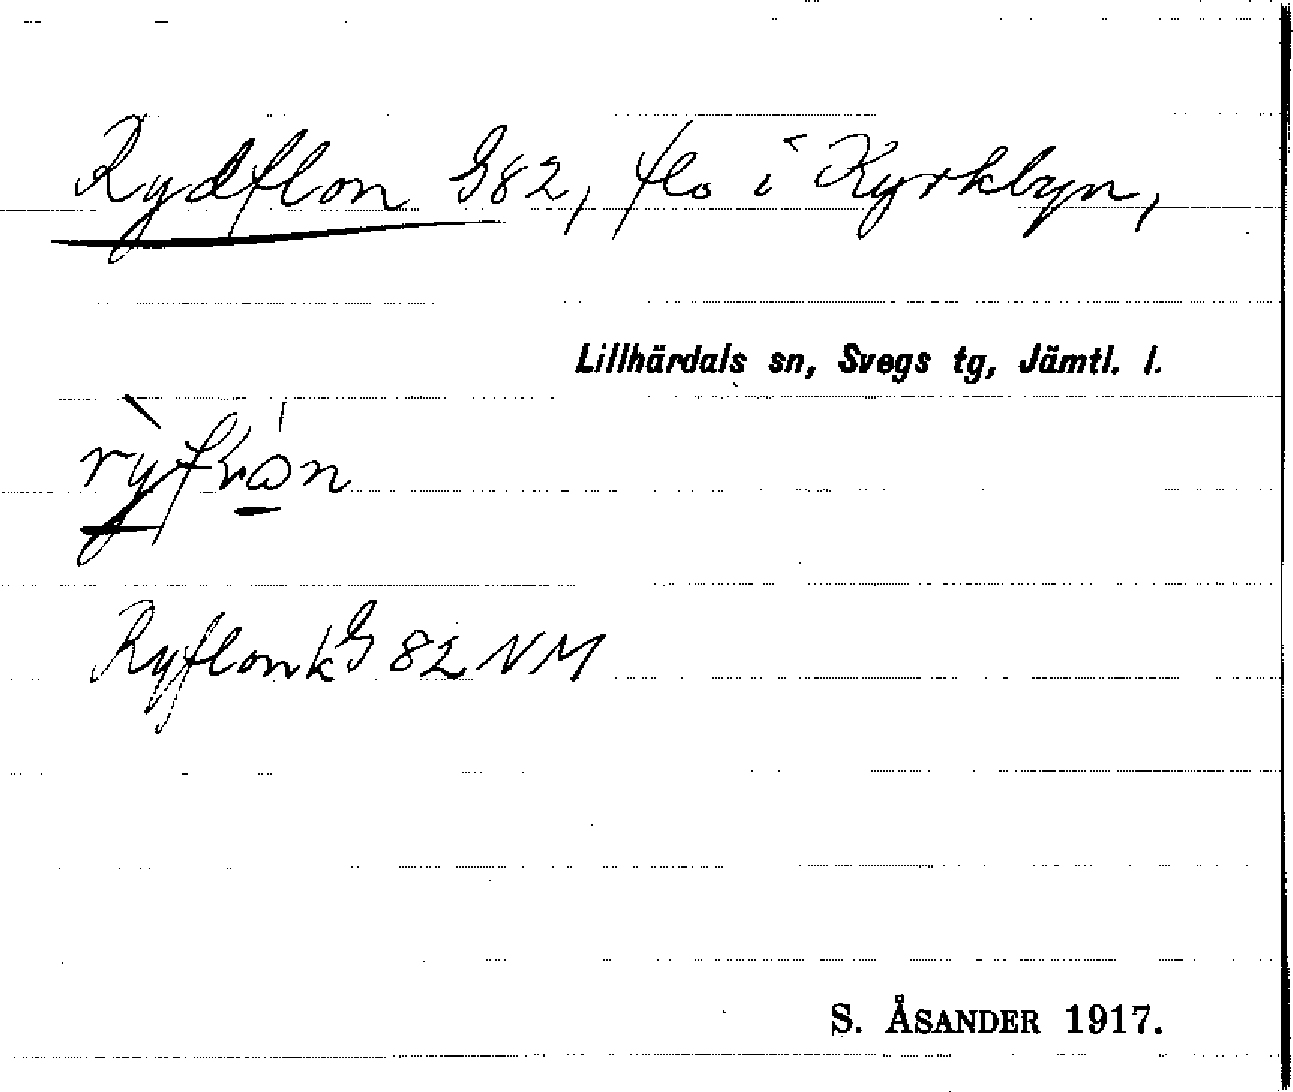 Rydflon G82, flo i Kyrkbyn,
Lillhärdals sn, Svegs tg, Jämtl. l.
Ryflon kG 82 NM
S. ÅSANDER 1917.